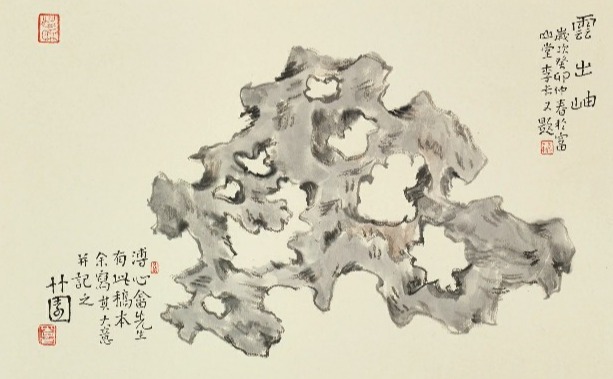 雲出岫
歲次癸卯仲春於富
山堂李
溥心畬先生
有此稿本
余寫其大意
并記之